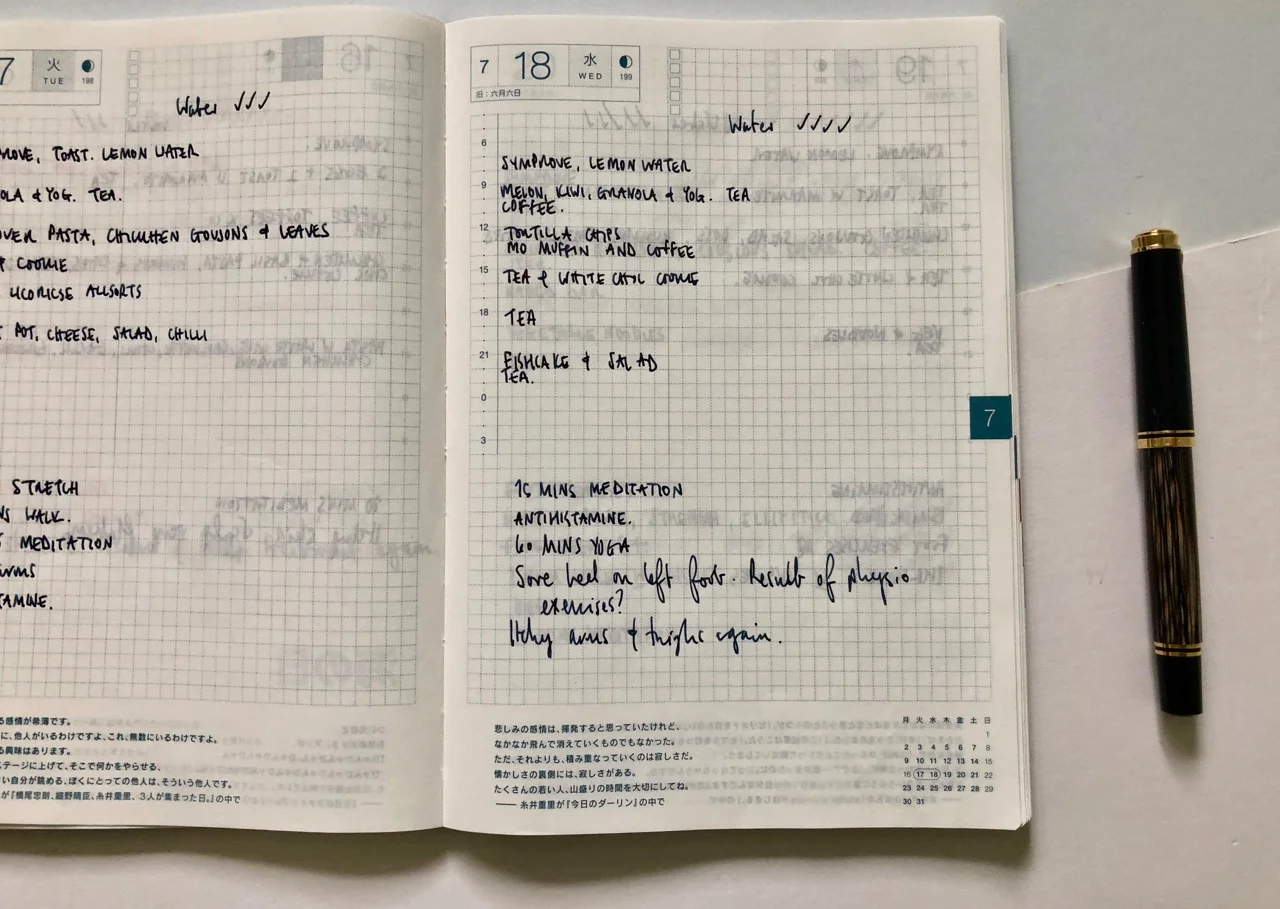 7
火
TUE
198
Water ✓✓✓
TOAST. LEMON WATER
& YOG. TEA.
PASTA, CHICKHEN GOUJONS & LEAVES
COOKIE
LICORICSE ALLSORTS
POT, CHEESE, SALAD, CHILLI
STRETCH
WALK.
MEDITATION
る感情が希薄です。
に、他人がいるわけですよ、これ、無数にいるわけですよ。
る興味はあります。
ステージに上げて、そこで何かをやらせる、
い自分が眺める、ぼくにとっての他人は、そういう他人です。
が『横尾忠則、細野晴臣、糸井重里、3人が集まった日。』の中で
7 18 水
WED
199
旧:六月六日
Water ✓✓✓✓
6
SYMPROVE, LEMON WATER
9
MELON, KIWI, GRANOLA & YOG. TEA
COFFEE.
12
TORTILLA CHIPS
MO MUFFIN AND COFFEE
15
TEA & WHITE CHOC COOKIE
18
TEA
21
FISHCAKE & SALAD
TEA.
0
3
7
15 MINS MEDITATION
ANTIHISTAMINE.
60 MINS YOGA
Sore heel on left foot. Result of physio
exercises?
Itchy arms & thighs again.
悲しみの感情は、揮発すると思っていたけれど、
なかなか飛んで消えていくものでもなかった。
ただ、それよりも、積み重なっていくのは寂しさだ。
懐かしさの裏側には、寂しさがある。
たくさんの若い人、山盛りの時間を大切にしてね。
—— 糸井重里が『今日のダーリン』の中で
月 火 水 木 金 土 日
1
2 3 4 5 6 7 8
9 10 11 12 13 14 15
16 17 18 19 20 21 22
23 24 25 26 27 28 29
30 31